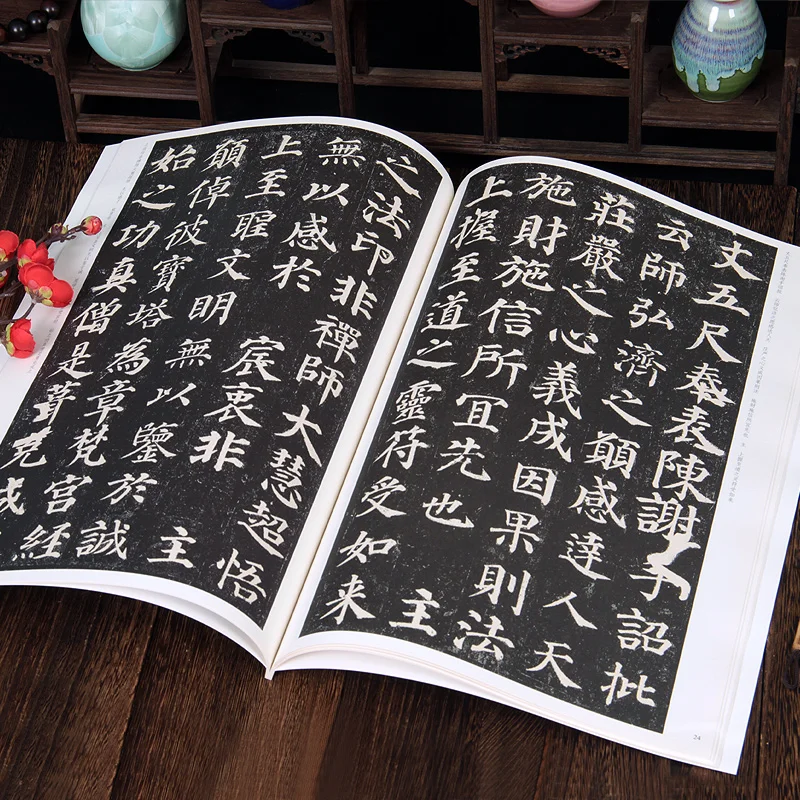 丈五尺奉表陳謝手詔批
云師弘濟之願感達人天
莊嚴之心義成因果則法
施財施信所冝先也主
上握至道之靈符受如来
之法印非禪師大慧超悟
無以感於宸衷非主
上至聖文明無以鑒於誠
願倬彼寶塔為章梵宮經
始之功真僧是葺克成
24